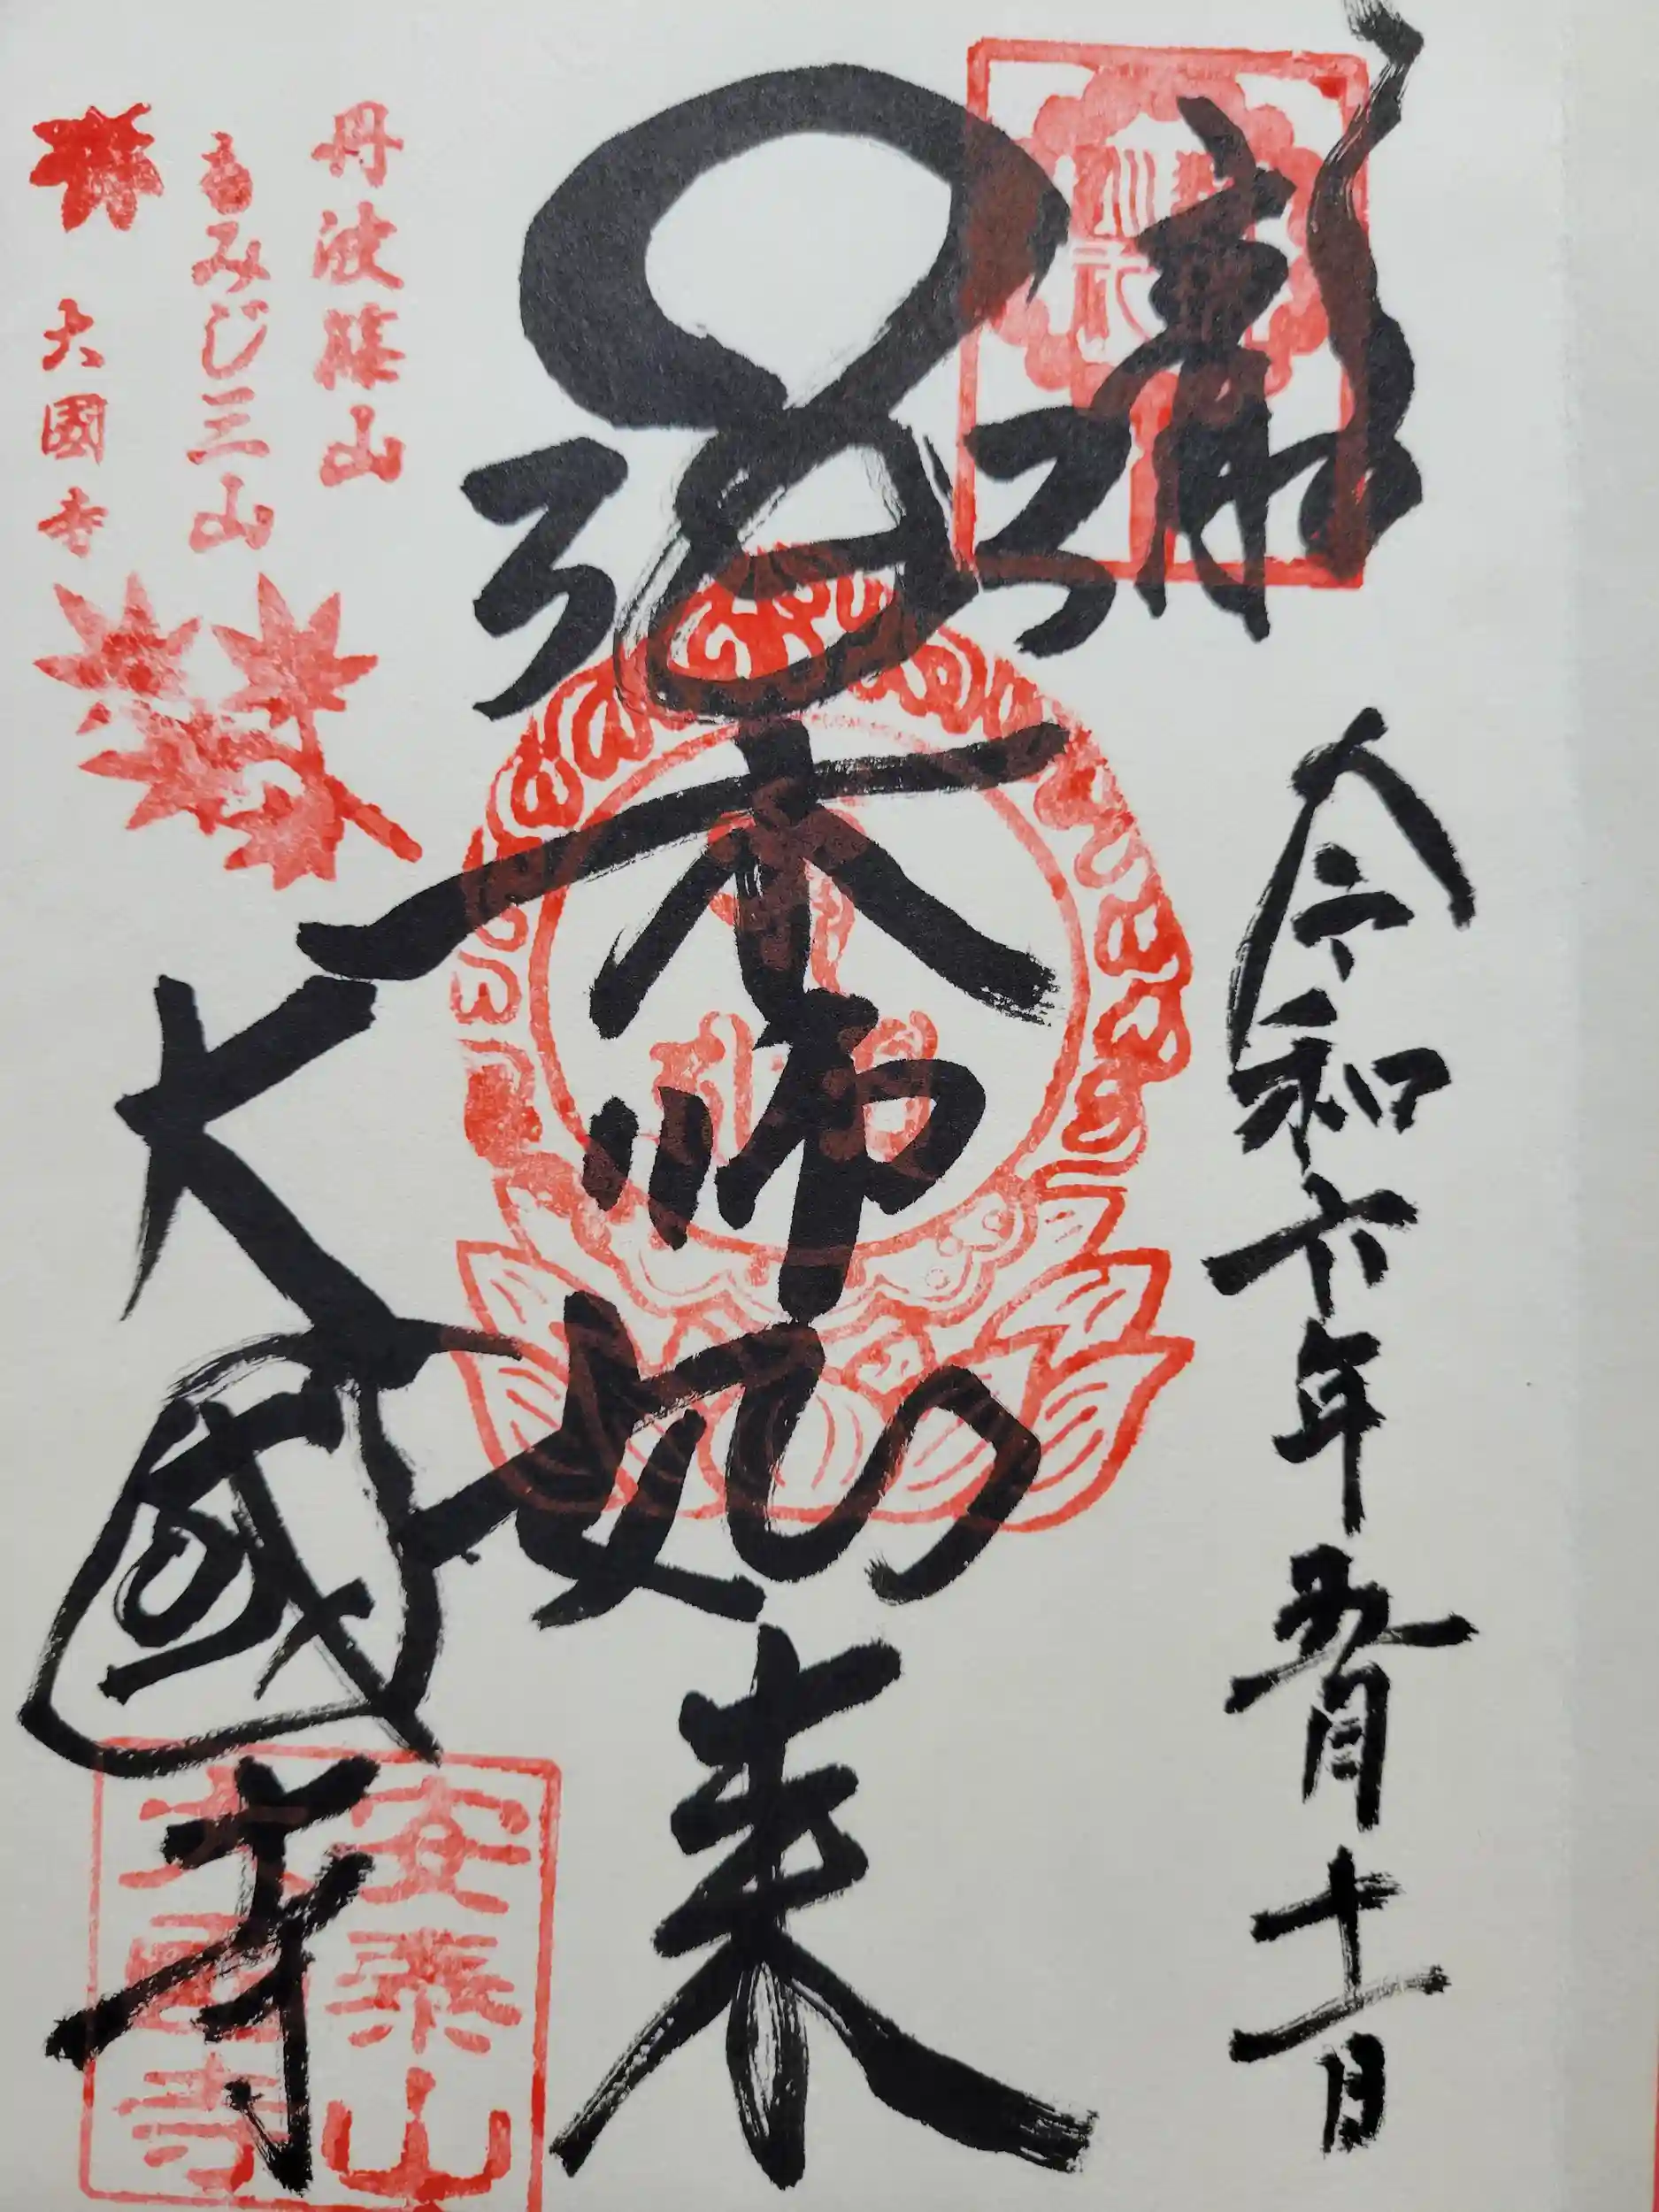 謹拜
令和六年五月十二日
薬師如来
大國寺
安泰山
大国寺
丹波篠山
もみじ三山
大國寺